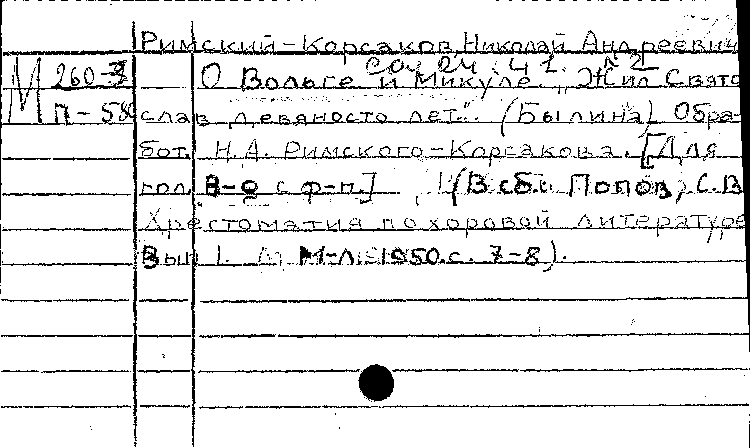 Римский-Корсаков, Николай Андреевич
соч. 24. ч 1. № 2
М 260-3 О Вольге и Микуле. „Жил Свято
П-58 слав девяносто лет". (Былина) Обра-
бот. Н.А. Римского-Корсакова. [Для
гол. В-о с ф-п.] (В сб.: Попов, С.В
Хрестоматия по хоровой литературе
Вып 1. М-Л. 1950. с. 7-8).